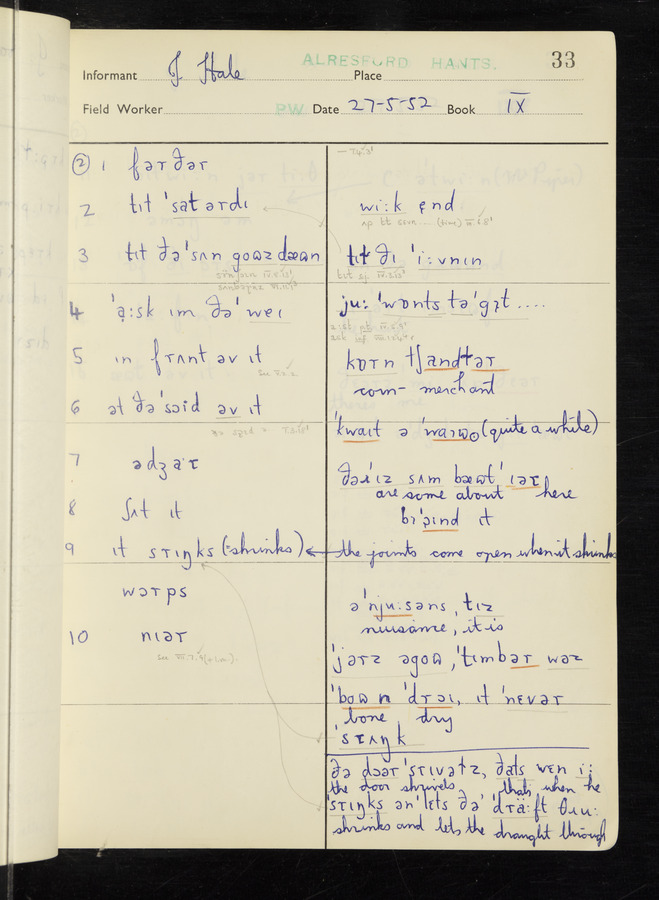 ALRESFORD HANTS. 33
Informant J. Hale Place
Field Worker PW Date 27-5-52 Book IX
② 1 fəɾðəɾ
2 tɪt 'satəɾdɪ
3 tɪt ðə'sʌn goʊz dæʊn
4 'ạ:sk ɪm ðə' weɪ
5 ɪn fɾʌnt əv ɪt
see
6 ət ðə'sɔɪd əv ɪt
7 ədʒa'ɾ
8 ʃʌt ɪt
9 ɪt sɾɪŋks (=shrinks)
wɔɾps
10 nɪəɾ
wi:k end
tɪt ðɪ 'i:vnɪn
ju: 'wɒnts tə 'gɪt ....
kɒɾn tʃandtəɾ
corn-merchant
'kwaɪt ə (quite a while)
ðəɪ'ɪz sʌm bæʊt 'ɪəɾ
are some about here
bɪ'əɪnd ɪt
← the joints come open when it shrinks
ə 'nju:səns, tɪz
nuisance, it is
'jəɾz əgoʊ, 'tɪmbəɾ wəz
'boʊn 'dɾəɪ, ɪt 'nevəɾ
bone dry
'sɾʌŋk
ðə dɔəɾ 'sɾɪvəɫz, ðats wen i:
the door shrivels, thats when he
'sɾɪŋks ən 'lets ðə 'dɾä:ft θɪu:
shrinks and lets the draught through